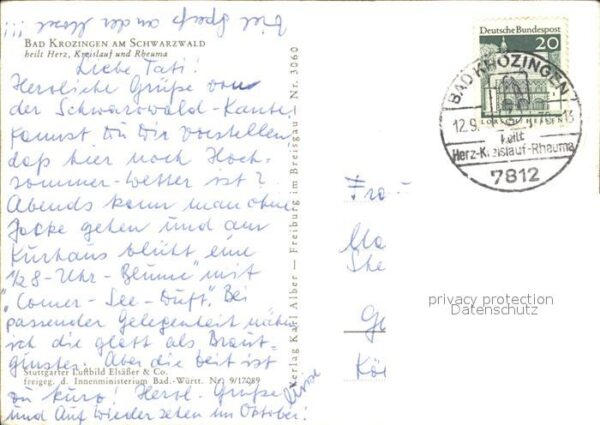 viel Spaß an der Mosel !!!
BAD KROZINGEN AM SCHWARZWALD
heilt Herz, Kreislauf und Rheuma
Liebe Tati!
Herzliche Grüße von
der Schwarzwald-Kante.
Kannst Du Dir vorstellen,
daß hier noch Hoch-
sommer-wetter ist?
Abends kann man ohne
Jacke gehen und am
Kurhaus blüht eine
"1/2 8-Uhr-Blume" mit
"Comer-See-Duft". Bei
passender Gelegenheit
ich die glatt als Braut-
ginster. Aber die Zeit ist
zu kurz! Herzl. Grüße
und Auf Wiedersehen im Oktober!
Stuttgarter Luftbild Elsäßer & Co.
freigeg. d. Innenministerium Bad.-Württ. Nr. 9/17089
Verlag Karl Alber — Freiburg im Breisgau Nr. 3060
DEUTSCHE BUNDESPOST
20
BAD KROZINGEN
12.9.
13
heilt
Herz-Kreislauf-Rheuma
7812
Fra
Ma
Ste
Ge
Köl
privacy protection
Datenschutz